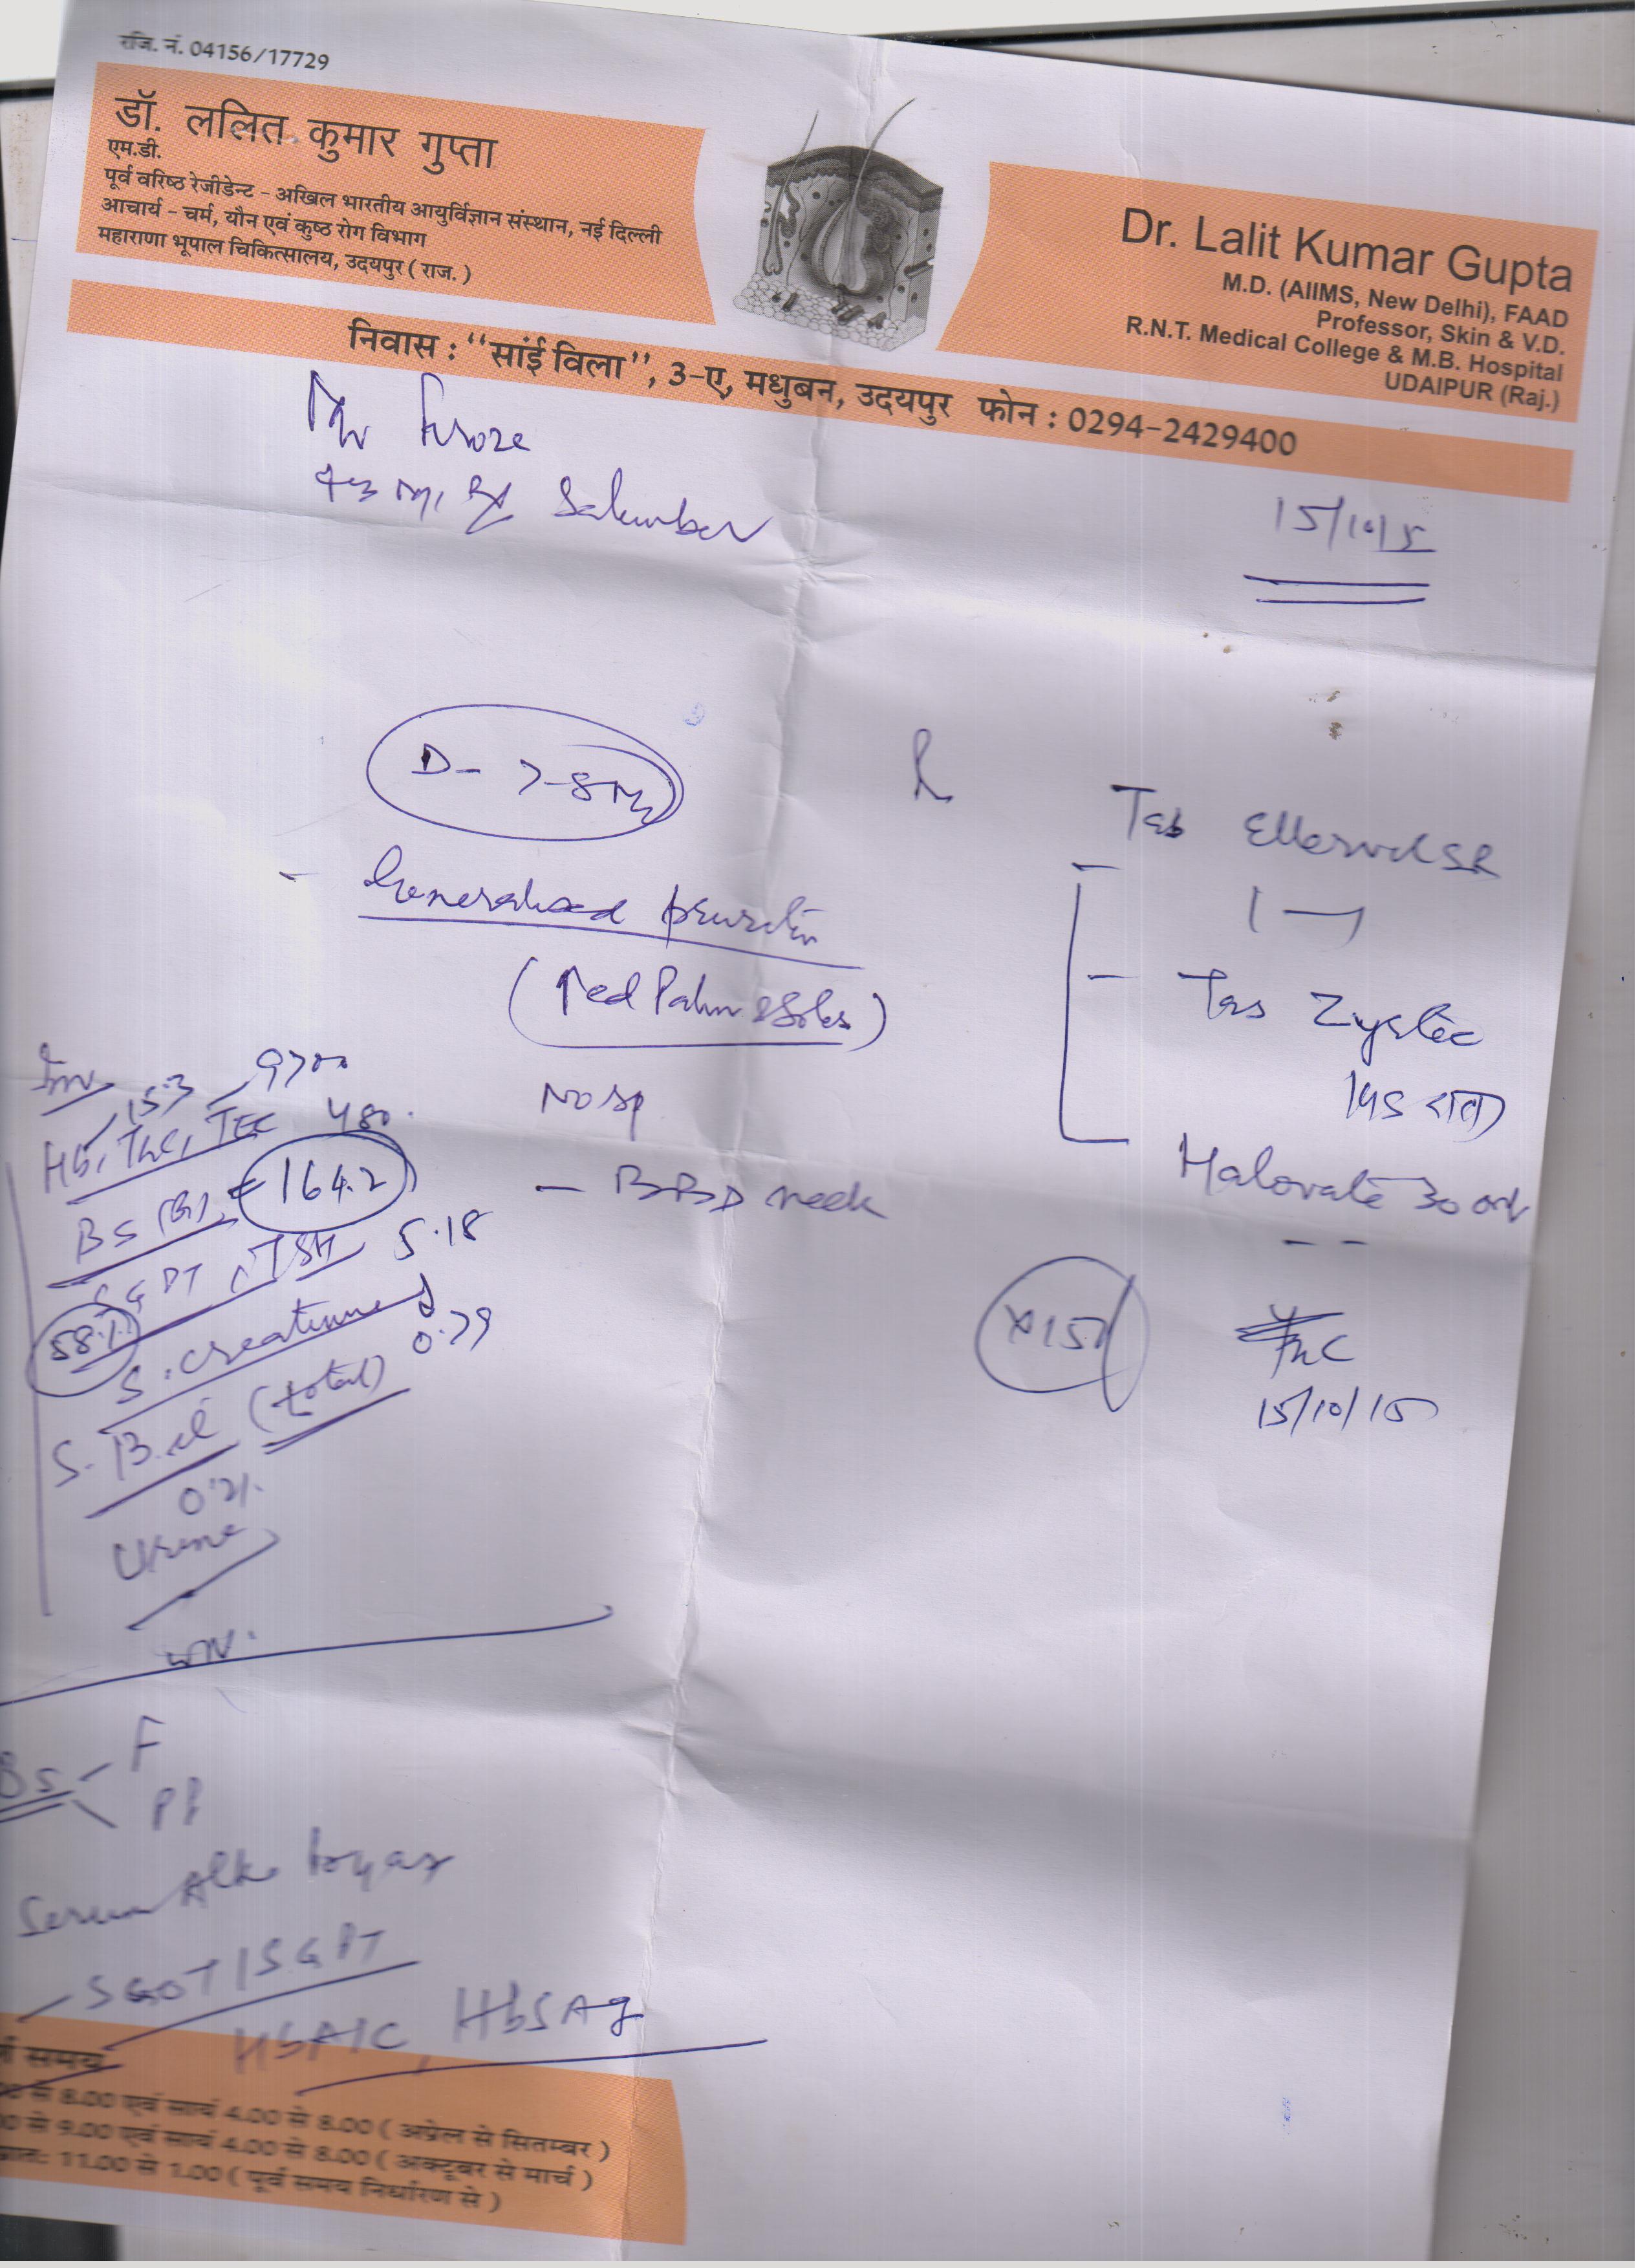 रजि. नं. 04156/17729
डॉ. ललित कुमार गुप्ता
एम.डी.
पूर्व वरिष्ठ रेजीडेन्ट - अखिल भारतीय आयुर्विज्ञान संस्थान, नई दिल्ली
आचार्य - चर्म, यौन एवं कुष्ठ रोग विभाग
महाराणा भूपाल चिकित्सालय, उदयपुर ( राज. )
Dr. Lalit Kumar Gupta
M.D. (AIIMS, New Delhi), FAAD
Professor, Skin & V.D.
R.N.T. Medical College & M.B. Hospital
UDAIPUR (Raj.)
निवास : "सांई विला", 3-ए, मधुबन, उदयपुर फोन : 0294-2429400
Firoze
Salumber
15/10/5
D- 7-8
- Generalised
(Red Palm & Soles)
Tab
1
- Tab Zyrtec
Halovate 30
Inv
Hb, TLC, TEC 15.3 9700 480
BS (R) 164.2
SGPT, TSH 5.18
58.1
S. creatinine
0.79
S. Bil (total)
Urine
- BBD neck
x 15d
15/10/15
BS F
PP
Serum Alk
SGOT/SGPT
HbA1C, HbSAg
समय
से 8.00 एवं सायं 4.00 से 8.00 ( अप्रेल से सितम्बर )
से 9.00 एवं सायं 4.00 से 8.00 ( अक्टूबर से मार्च )
प्रातः 11.00 से 1.00 ( पूर्व समय निर्धारण से )